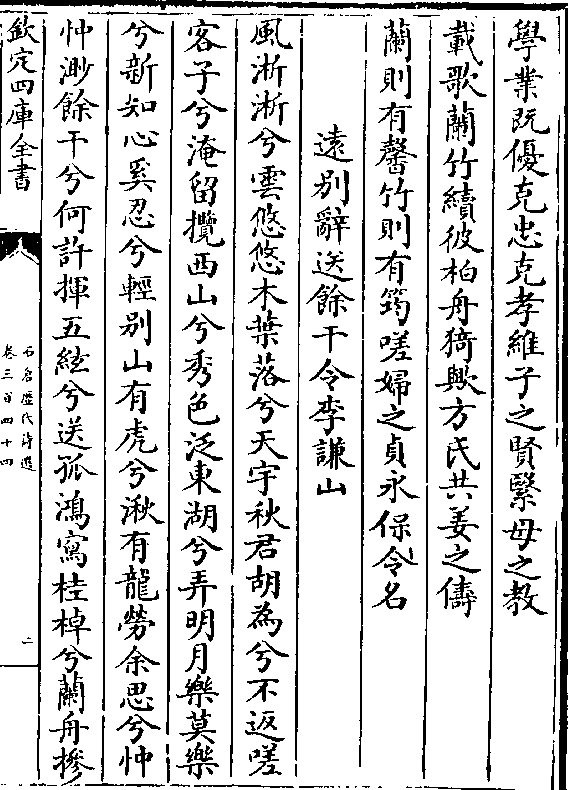 學業既優克忠克孝維子之賢繄母之教
載歌蘭竹續彼柏舟猗歟方氏共姜之儔
蘭則有馨竹則有筠嗟婦之貞永保令名
遠别辭送餘干令李謙山
風淅淅兮雲悠悠木葉落兮天宇秋君胡為兮不返嗟
客子兮淹留攬西山兮秀色泛東湖兮弄明月樂莫樂
兮新知心奚忍兮輕别山有虎兮湫有龍勞余思兮忡
忡渺餘干兮何許揮五絃兮送孤鴻寫桂棹兮蘭舟摻
欽定四庫全書
石倉歷代詩選
卷三百四十四
二